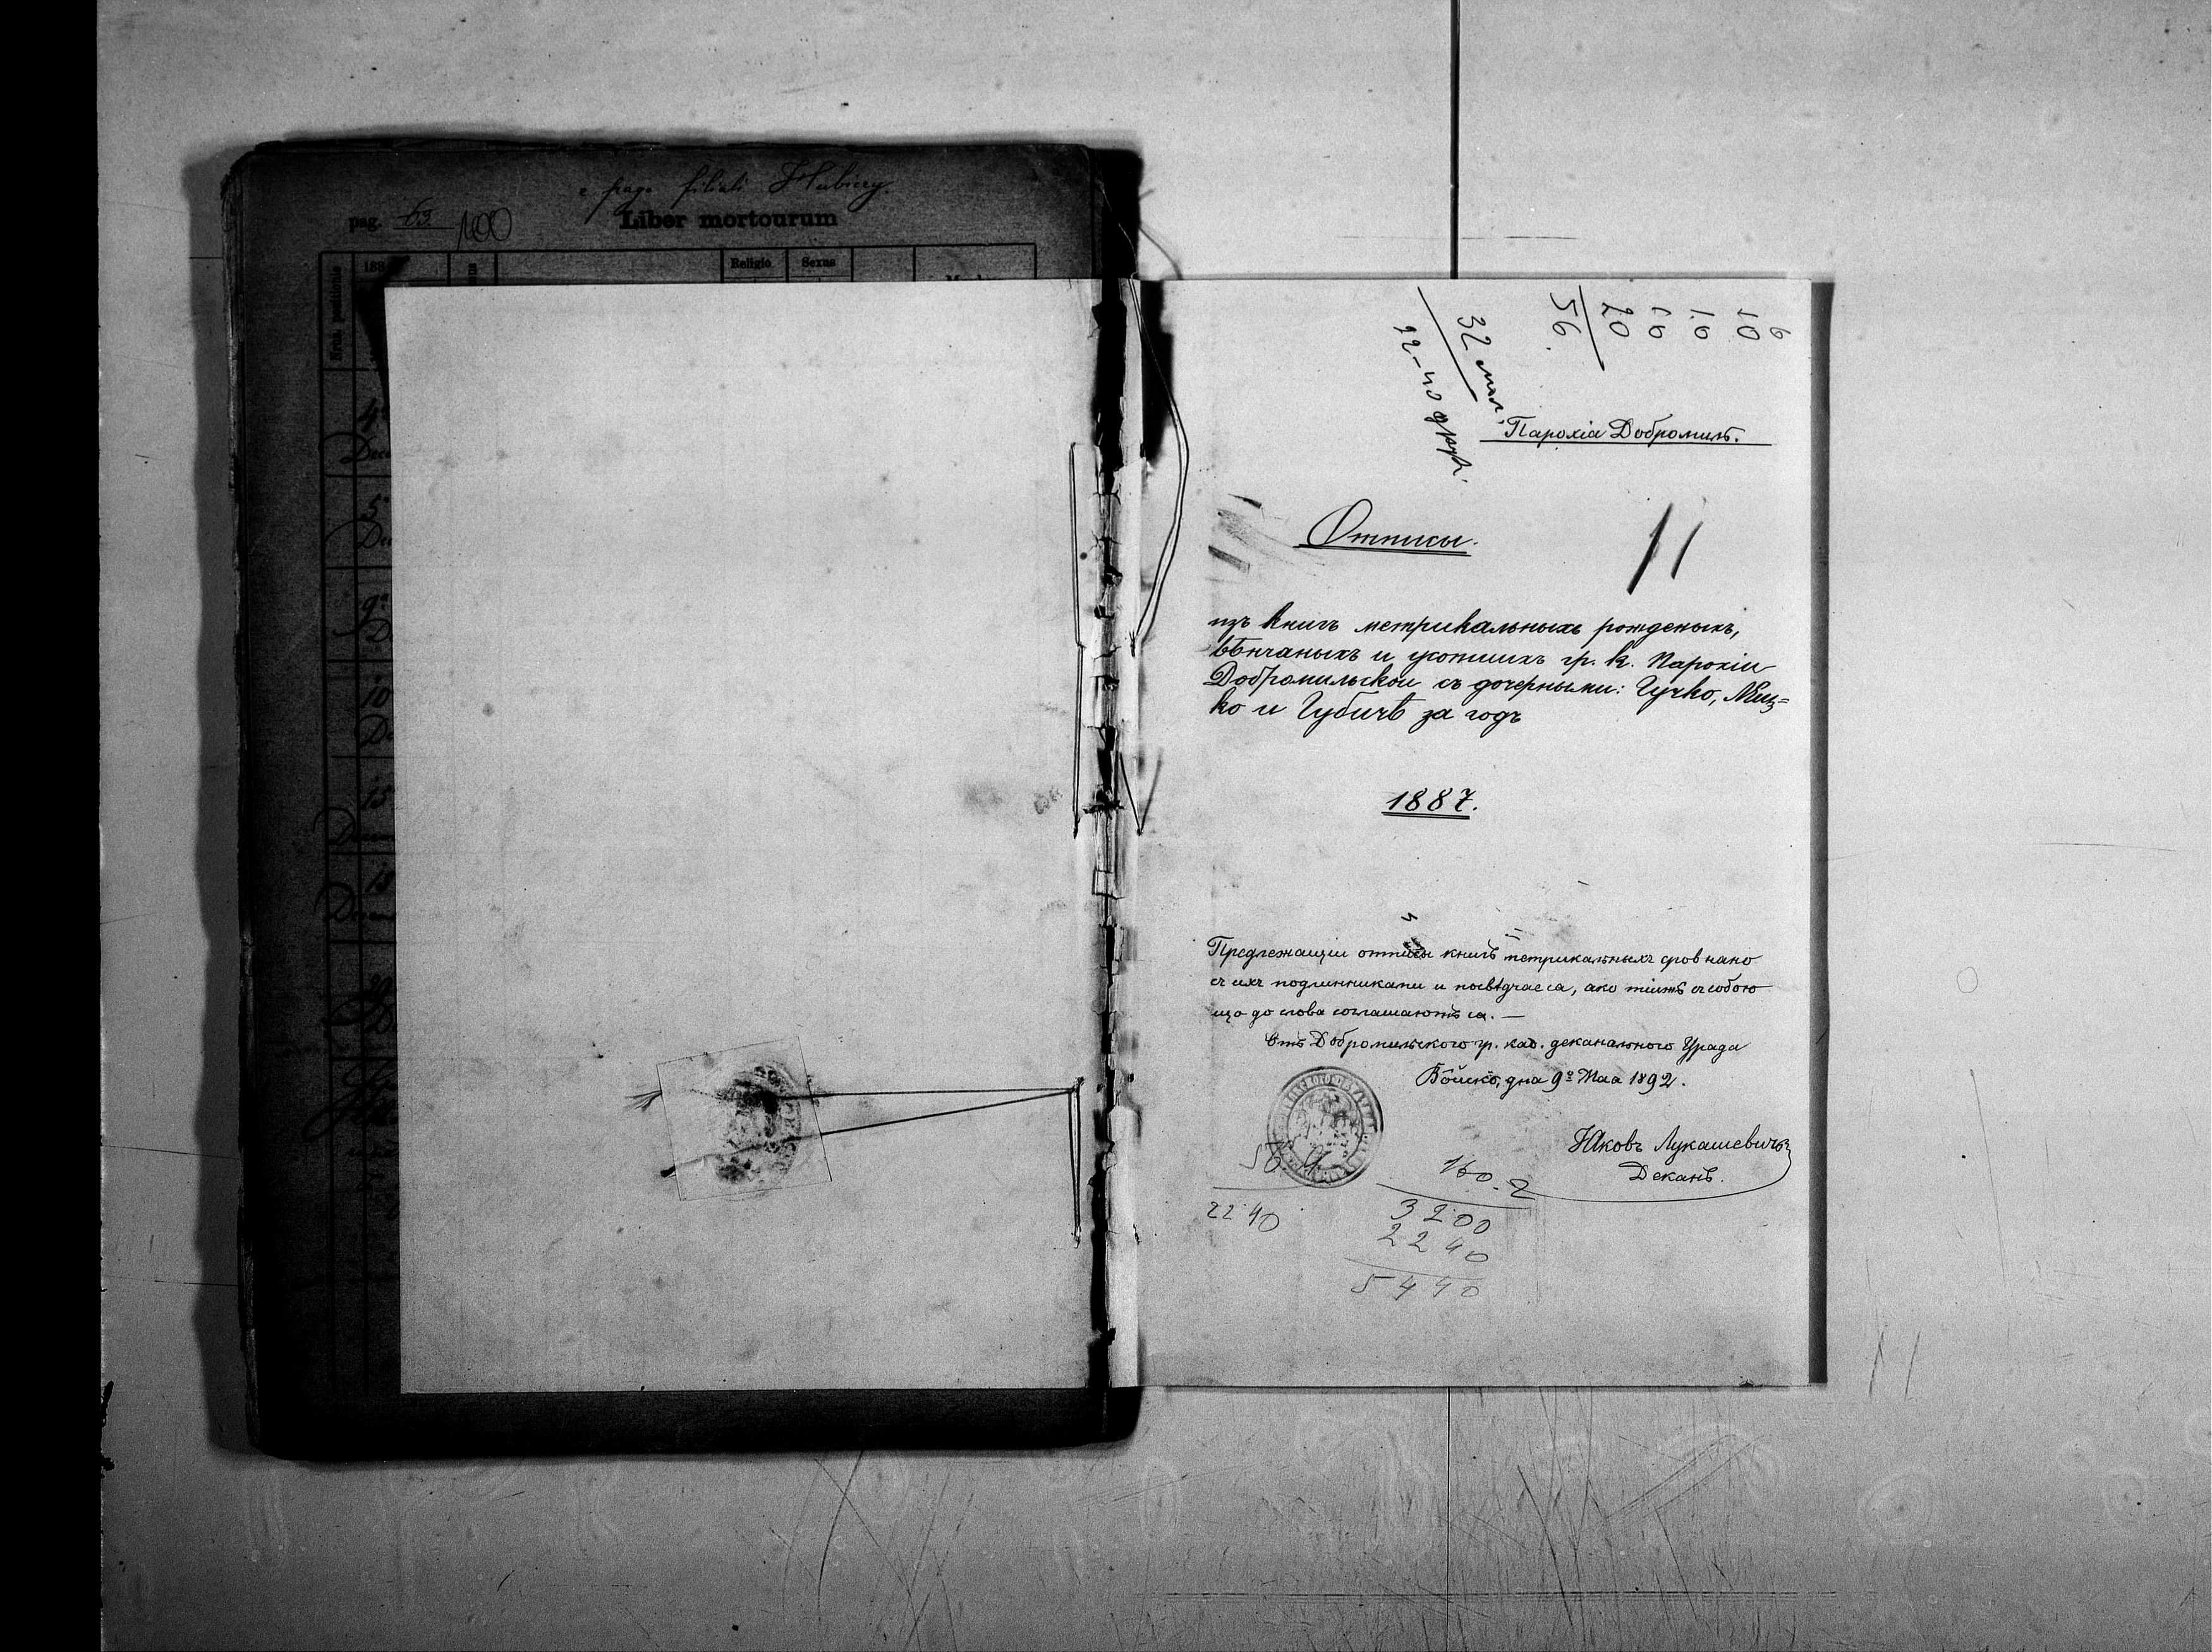 e pago filiali Hubiczy.
pag. 63 100
Liber mortourum
188
Religio Sexus
5
10
15
15
6
10
10
10
20
56.
32
Парохіа Добромиль.
Отписы.
11
изъ книгъ метрикальныхъ рожденыхъ,
вѣнчаныхъ и усопшихъ гр. к. Парохіи
Добромильскои съ дочерными: Гучко, Мѣц=
ко и Губичѣ за годъ
1887.
Предлежащіи отписы книгъ метрикальныхъ сровнано
съ ихъ подлинниками и посвѣдчаеса, ако тіижъ съ собою
що до слова соглашаютъ са. —
Отъ Добромильского гр. каѳ. деканального Урада
Войско, дна 9º Маа 1892.
Яковъ Лукашевичъ
Деканъ.
56 4
2240
160.2
3200
2240
5440